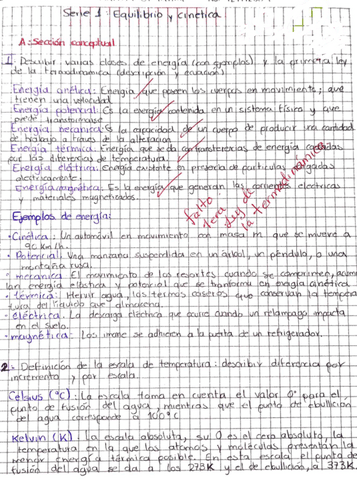 Serie 1: Equilibrio y Cinética
A: Sección conceptual
I. Describir varias clases de energía (con ejemplos) y la primera ley
de la termodinámica (descripción y ecuación)
Energía cinética: Energía que poseen los cuerpos en movimiento, que
tienen una velocidad.
Energía potencial: Es la energía contenida en un sistema físico y que
puede transformarse
Energía mecánica: Es la capacidad de un cuerpo de producir una cantidad
de trabajo a través de la alteración
Energía térmica: Energía que se da con transferencias de energía
por las diferencias de temperatura.
Energía eléctrica: Energía existente en presencia de partículas cargadas
eléctricamente.
Energía magnética: Es la energía que generan las corrientes eléctricas
y materiales magnetizados.
falto
1era ley de
la termodinámica
Ejemplos de energía:
· Cinética: Un automóvil en movimiento con masa m que se mueve a
90 km/h.
· Potencial: Una manzana suspendida en un árbol, un péndulo, o una
montaña rusa.
· mecánica: El movimiento de los resortes cuando se comprimen, acumu
lan energía elástica y potencial que se transforma en energía cinética
· térmica: Hervir agua, los termos caseros que conservan la tempera
tura del líquido que almacena.
· eléctrica: La descarga eléctrica que ocurre cuando un relámpago impacta
en el suelo.
· magnética: Los imane se adhieren a la puerta de un refrigerador.
2. Definición de la escala de temperatura: describir diferencia por
incremento y por escala.
Celsius (°C): La escala toma en cuenta el valor 0° para el
punto de fusión del agua, mientras que el punto de ebullición
del agua corresponde a 100°C
Kelvin (K): La escala absoluta, su 0 es el cero absoluto, la
temperatura en la que los átomos y moléculas presentan la
menor energía térmica posible. En esta escala el punto de
fusión del agua se da a los 273K y el de ebullición, a 373K.